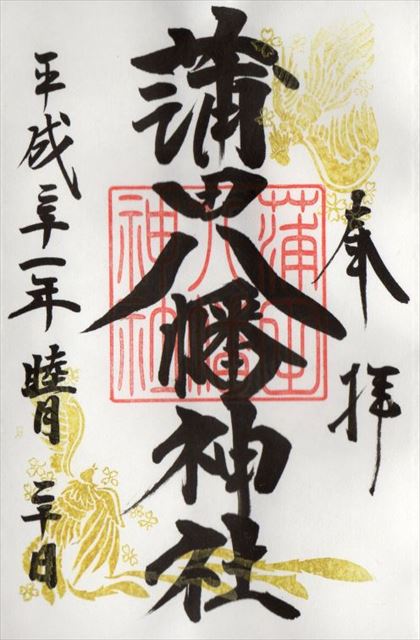 奉拝
蒲田八幡神社
蒲田
八幡
神社
平成三十一年 睦月 二十日